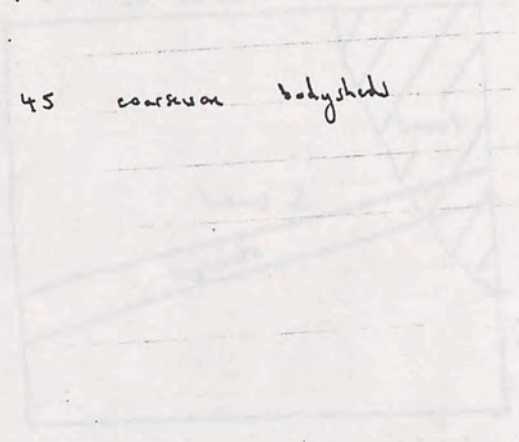 45 coarseware bodysherds